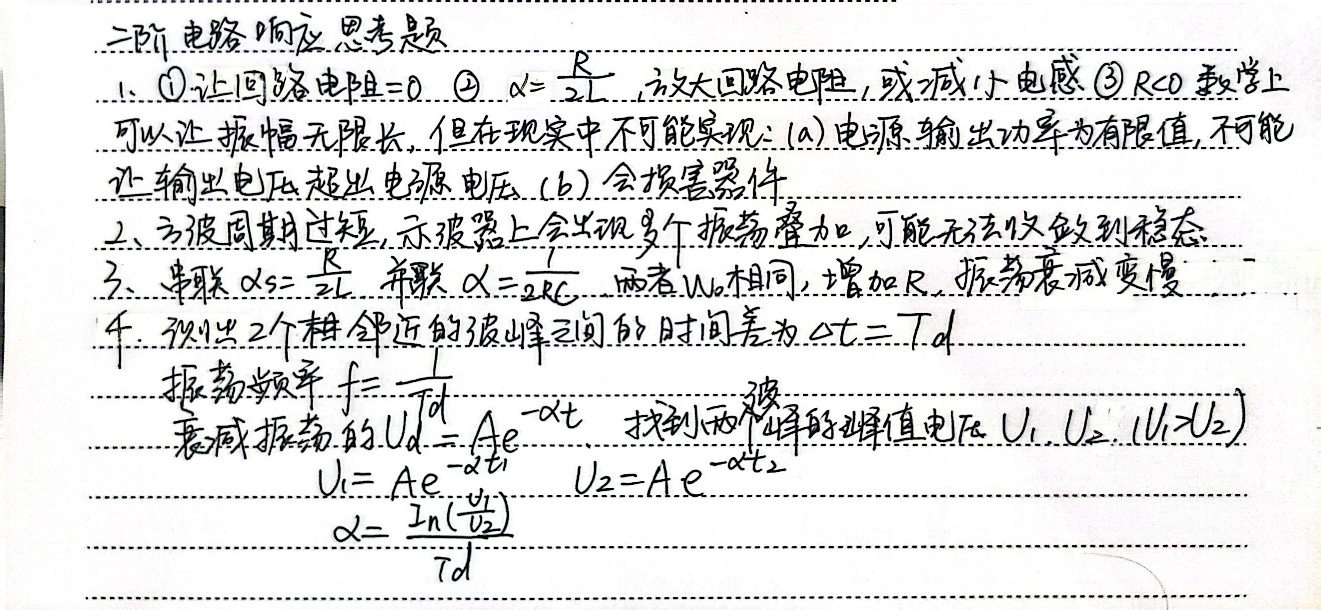 二阶电路响应思考题
1、①让回路电阻=0 ② α=R/2L,放大回路电阻,或减小电感 ③ R<0 数学上
可以让振幅无限长,但在现实中不可能实现:(a)电源输出功率为有限值,不可能
让输出电压超出电源电压 (b)会损害器件
2、方波周期过短,示波器上会出现多个振荡叠加,可能无法收敛到稳态.
3、串联 αs=R/2L 并联 α=1/2RC 两者W₀相同,增加R,振荡衰减变慢
4. 测出2个相邻近的波峰之间的时间差为 Δt=Td
振荡频率 f=1/Td
衰减振荡的Ud=Ae^-αt. 找到两个波峰的峰值电压 U₁、U₂.(U₁>U₂)
U₁=Ae^-αt₁ U₂=Ae^-αt₂
α=In(U₁/U₂)/Td